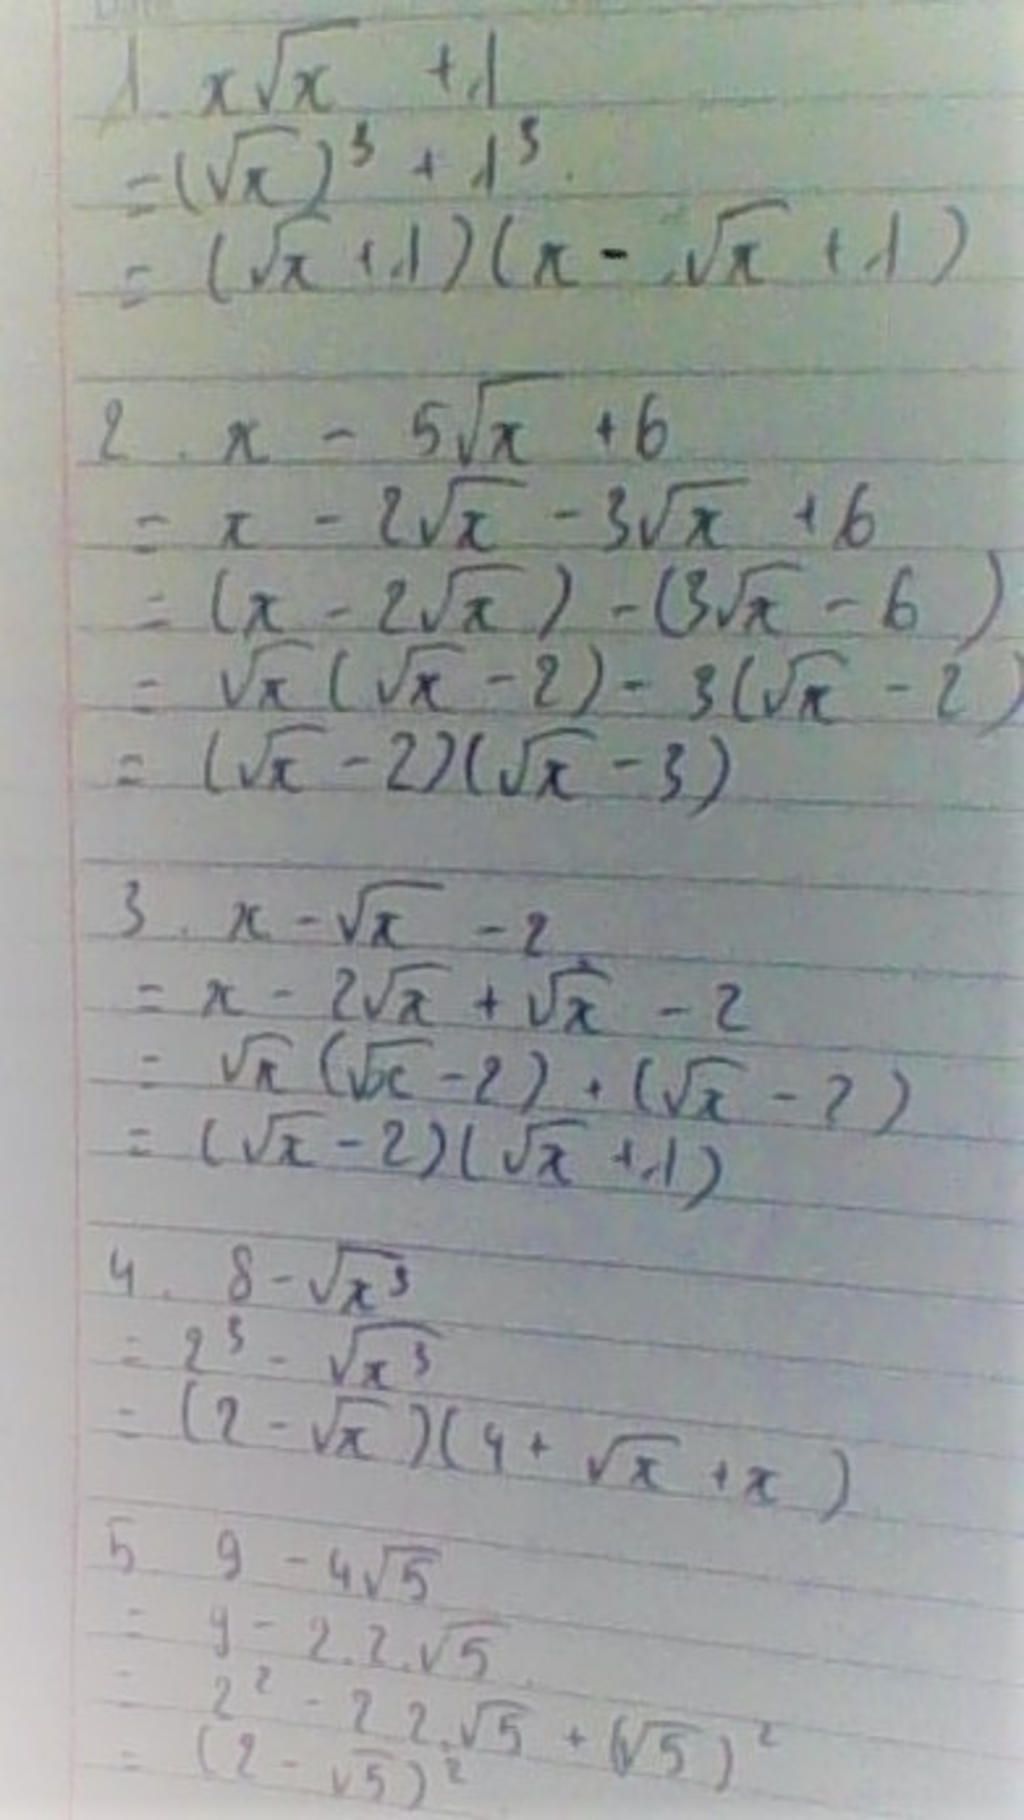 1. x√x + 1
= (√x)³ + 1³.
= (√x + 1)(x - √x + 1)
2. x - 5√x + 6
= x - 2√x - 3√x + 6
= (x - 2√x) - (3√x - 6)
= √x(√x - 2) - 3(√x - 2)
= (√x - 2)(√x - 3)
3. x - √x - 2
= x - 2√x + √x - 2
= √x(√x - 2) + (√x - 2)
= (√x - 2)(√x + 1)
4. 8 - √x³
= 2³ - √x³
= (2 - √x)(4 + √x + x)
5 9 - 4√5
= 9 - 2.2.√5
= 2² - 2 2.√5 + (√5)²
= (2 - √5)²